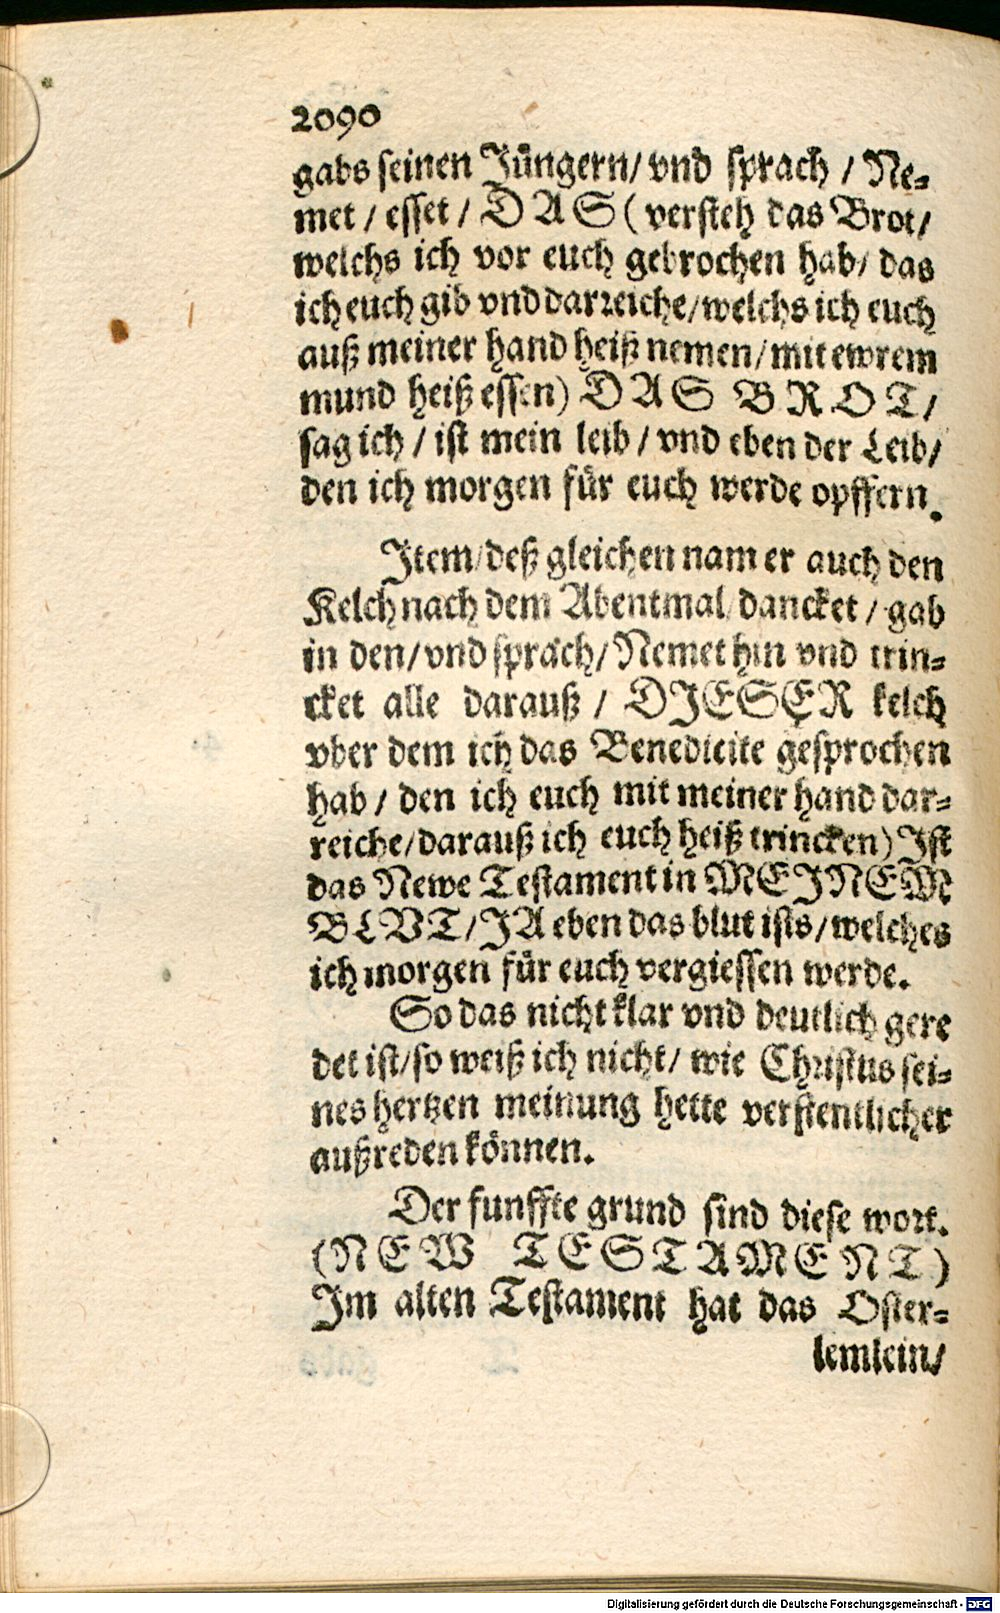 2090
gabs seinen Jüngern/ vnd sprach / Ne-
met / esset / DAS (versteh das Brot/
welchs ich vor euch gebrochen hab/ das
ich euch gib vnd darreiche/welchs ich euch
auß meiner hand heiß nemen/mit ewrem
mund heiß essen) DAS BROT/
sag ich / ist mein leib / vnd eben der Leib/
den ich morgen für euch werde opffern.
Item/deß gleichen nam er auch den
Kelch nach dem Abentmal/dancket / gab
in den/vnd sprach/Nemet hin vnd trin-
cket alle darauß / DIESER kelch
vber dem ich das Benedicite gesprochen
hab / den ich euch mit meiner hand dar-
reiche/darauß ich euch heiß trincken) Ist
das Newe Testament in MEINEM
BLVT/JA eben das blut ists/welches
ich morgen für euch vergiessen werde.
So das nicht klar vnd deutlich gere
det ist/so weiß ich nicht/ wie Christus sei-
nes hertzen meinung hette verstentlicher
außreden können.
Der funffte grund sind diese wort.
(NEW TESTAMENT)
Im alten Testament hat das Oster-
lemlein/
Digitalisierung gefördert durch die Deutsche Forschungsgemeinschaft - DFG